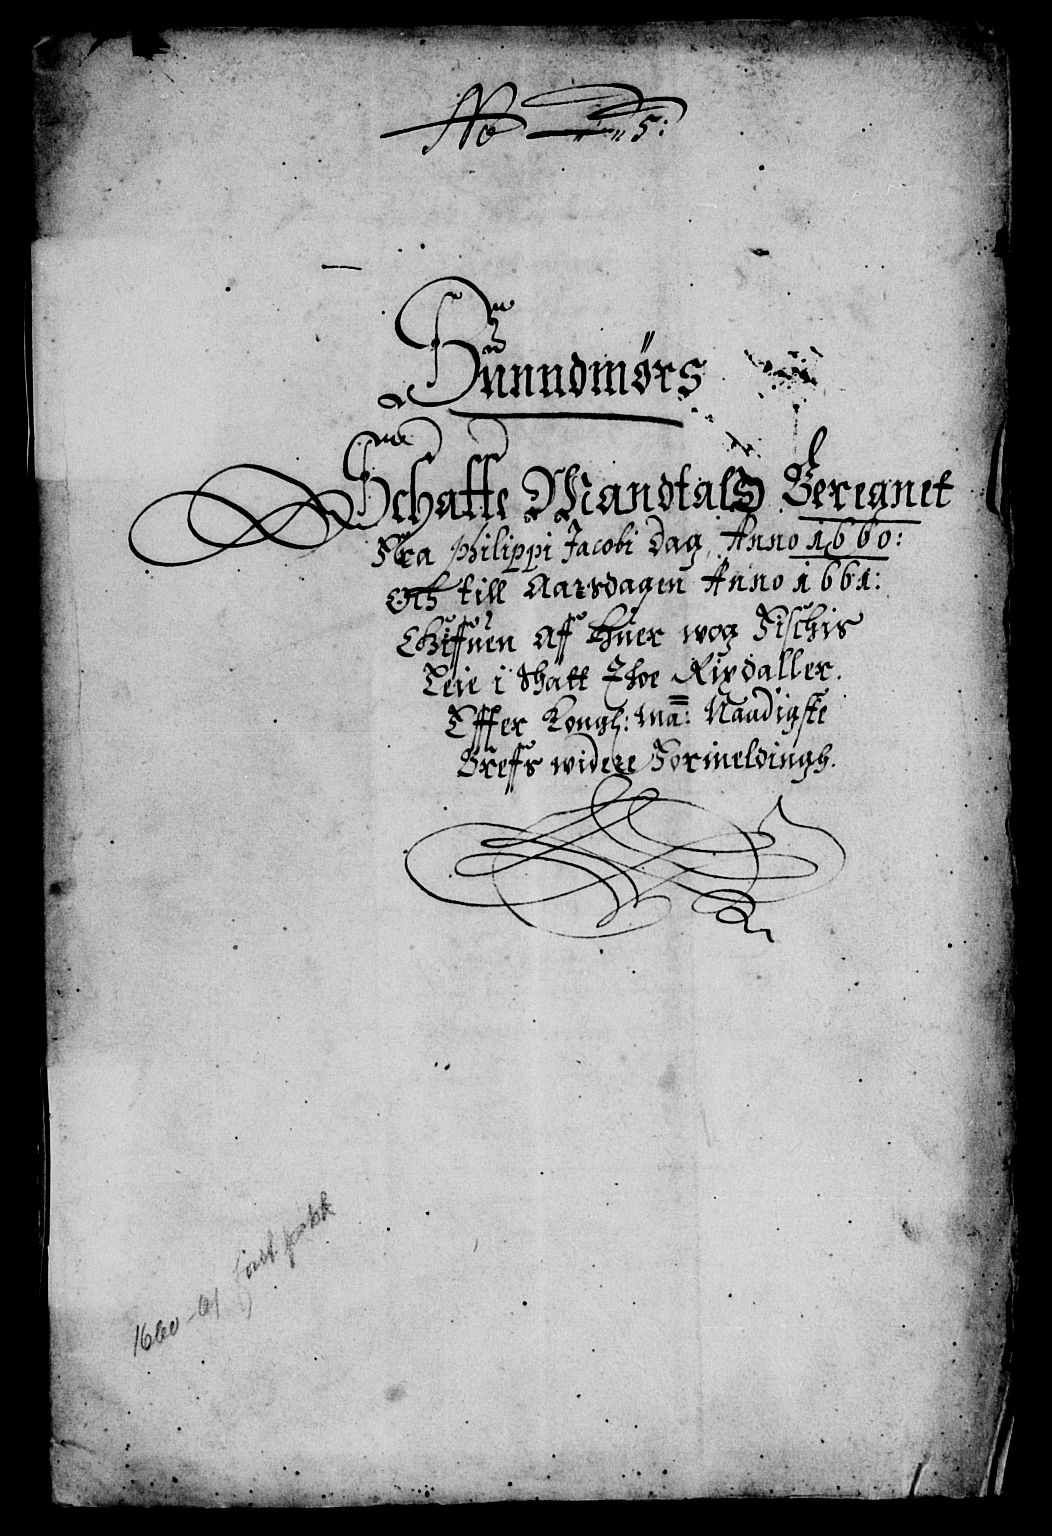 No 5:
Sunndmørs
Schatte Mandtals Beregnet
Fra Philippi Jacobi dag, Anno 1660:
Och till Aarsdagen Anno 1661:
Giffuen Aff huer wog Fischis
Leie i Skatt Thoe Rixdaller.
Effter Kongl: Ma: Naadigste
Breffs widere Formeldingh.
1660-61